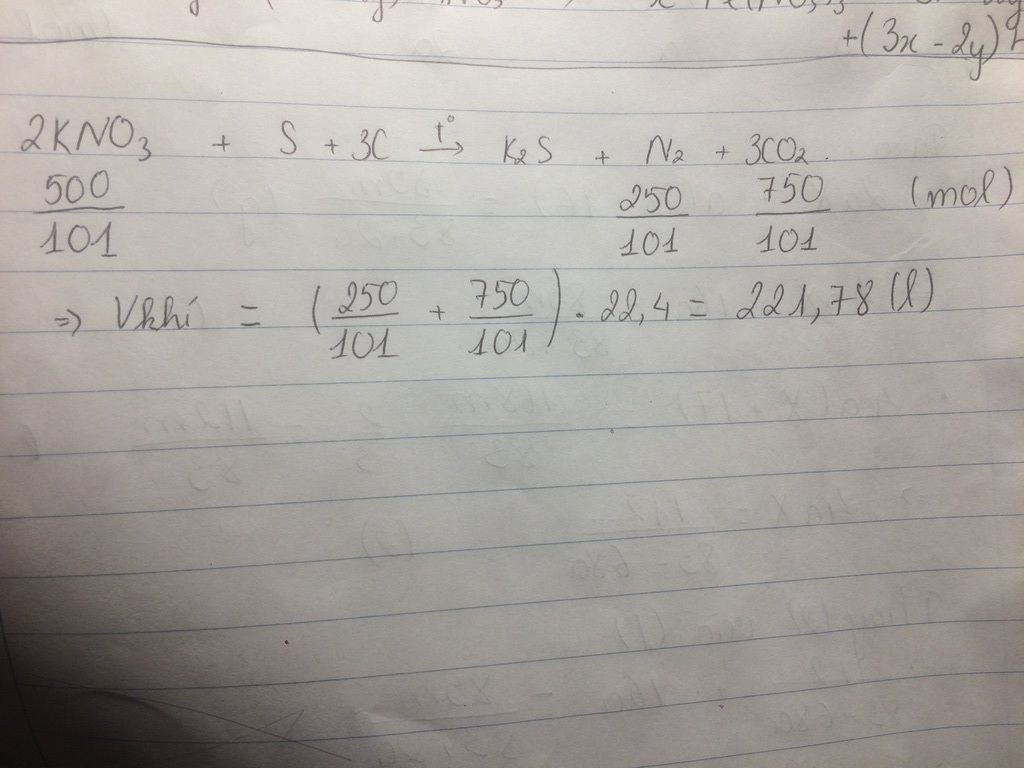 +(3x - 2y)
2KNO₃ + S + 3C →(t°) K₂S + N₂ + 3CO₂.
500/101 250/101 750/101 (mol)
=> Vkhí = (250/101 + 750/101) . 22,4 = 221,78 (l)